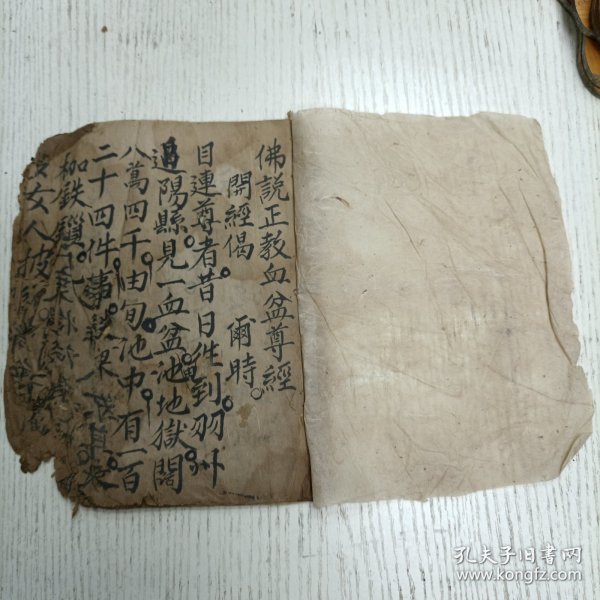 佛說正教血盆尊經
開經偈。爾時。
目連尊者昔日徃到羽州
追陽縣。見一血盆池地獄闊
八萬四千。由旬。池中。有一百
二十四件。事鉄梁
枷鉄鎖
女人披
孔夫子旧书网
www.kongfz.com